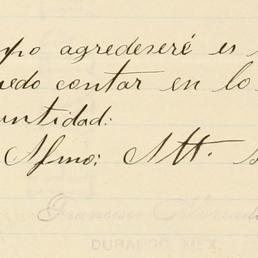 agredeseré es
contar en lo
Afmo: Att.
Francisco
DURANGO, MEX.